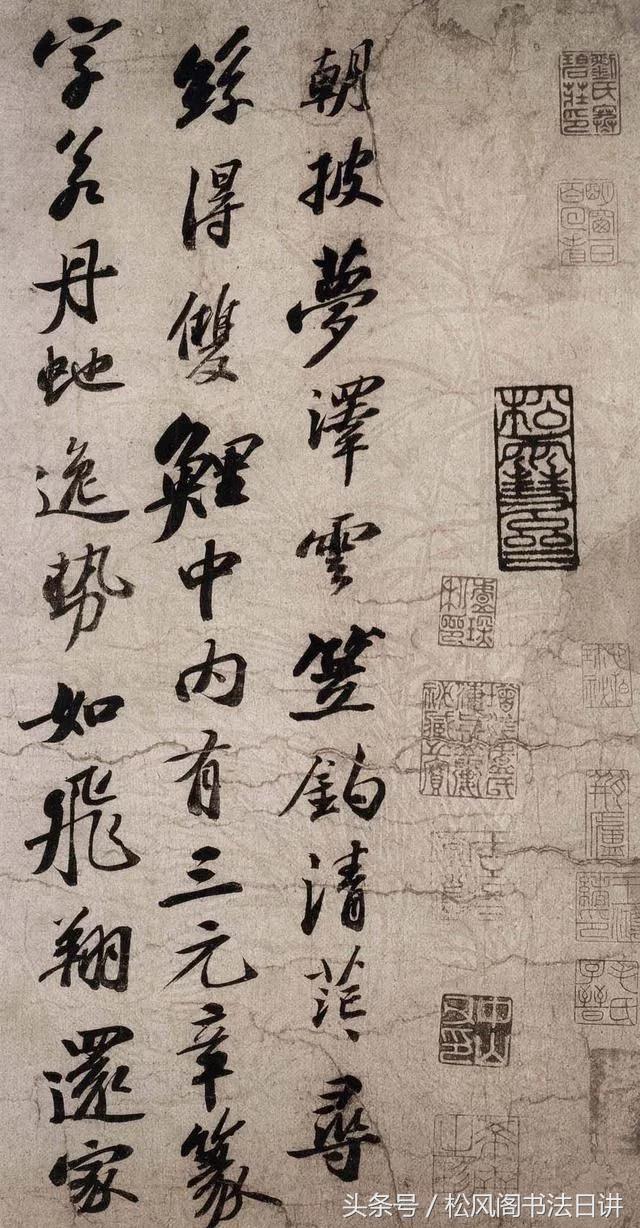 朝披夢澤雲笠釣清茫〻尋
絲得雙鯉中内有三元章篆
字若丹虵逸勢如飛翔還家
頭条号 / 松风阁书法日讲